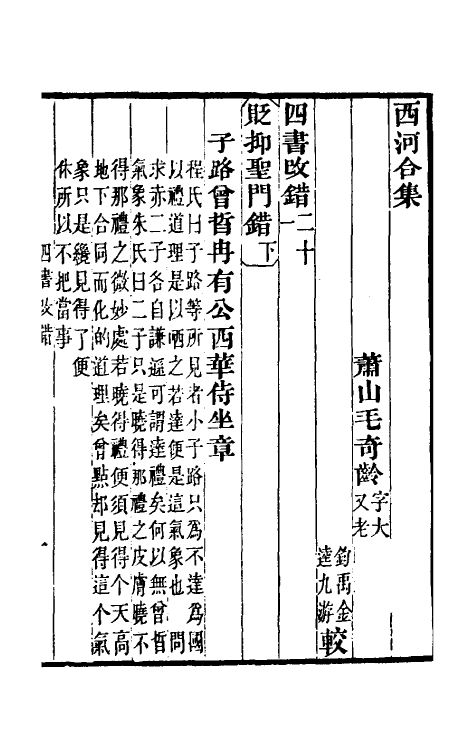 西河合集
蕭山毛奇齡 字大 又老
鈞禹金 逵九游 較
四書改錯 二十一
貶抑聖門錯 下
子路曾晳冉有公西華侍坐章
程氏曰子路等所見者小子路只為不達為國
以禮道理是以哂之若達便是這氣象也 問
求赤二子各自謙遜可謂達禮矣何以無曾晳
氣象朱氏曰二子只是曉得那禮之皮膚曉不
得那禮之微妙處若曉得禮便須見得个天高
地下合同而化的道理矣曾點却見得這个氣
象只是纔見得了便
休所以不把當事
四書改錯 一